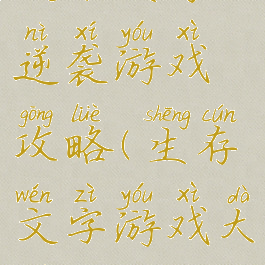 nì xí yóu xì
逆袭游戏
gōng lüè shēng cún
攻略(生存
wén zì yóu xì dà
文字游戏大